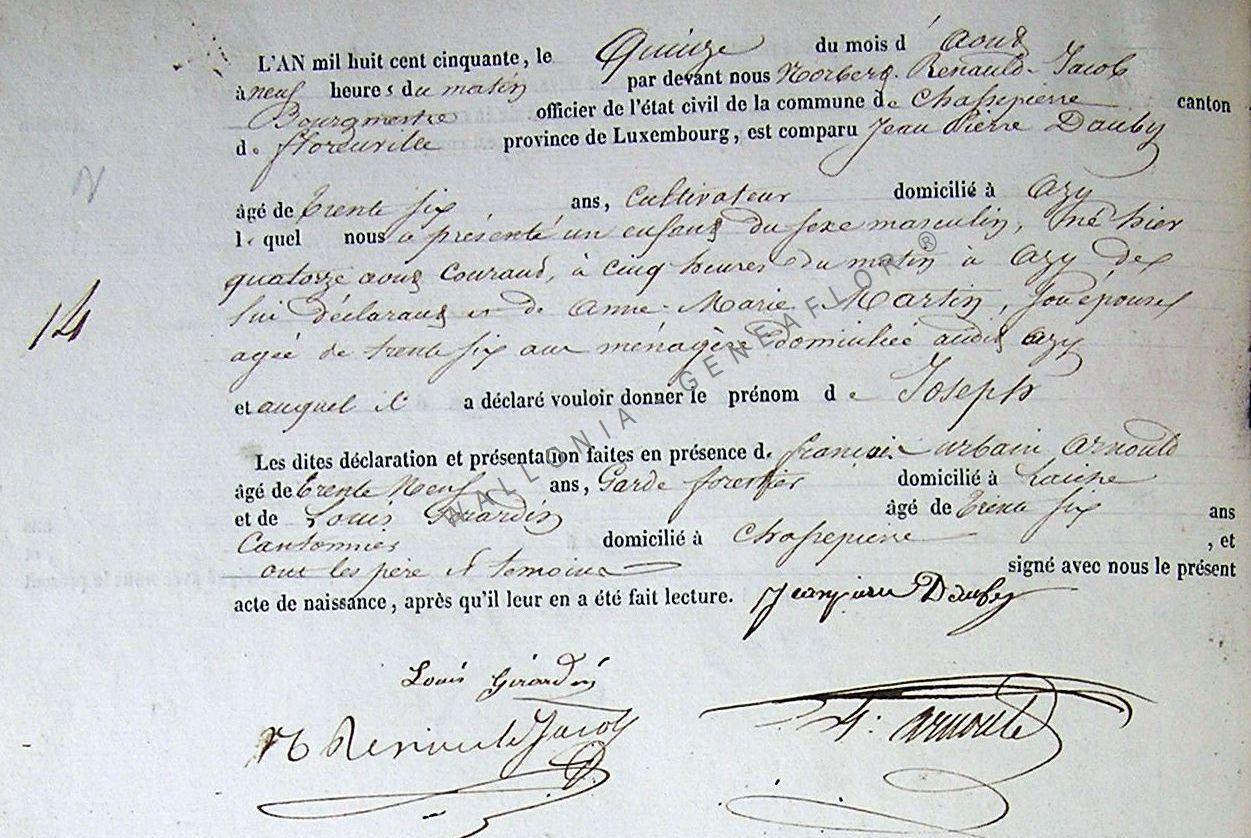 L'AN mil huit cent cinquante, le Quinze du mois d'aout
à neuf heures du matin par devant nous Norbert Renauld-Jacob
Bourgmestre officier de l'état civil de la commune de Chassepierre canton
de florenville province de Luxembourg, est comparu Jean Pierre Dauby
âgé de trente six ans, cultivateur domicilié à azy
lequel nous a présenté un enfant du sexe masculin, né hier
quatorze aout courant, à cinq heures du matin à azy de
lui déclarant et de anne-Marie Martin, son épouse
agée de trente six ans ménagère domiciliée audit azy
et auquel il a déclaré vouloir donner le prénom de Joseph
14
Les dites déclaration et présentation faites en présence de françois urbain arnould
âgé de trente Neuf ans, Garde forestier domicilié à Laiche
et de Louis Girardin âgé de trente six ans
Cantonnier domicilié à Chassepierre, et
ont les père et temoins signé avec nous le présent
acte de naissance, après qu'il leur en a été fait lecture. Jeanpierre Dauby
Louis Girardin
N Renauld Jacob
arnould
WALLONIA GENEAFLOR ®